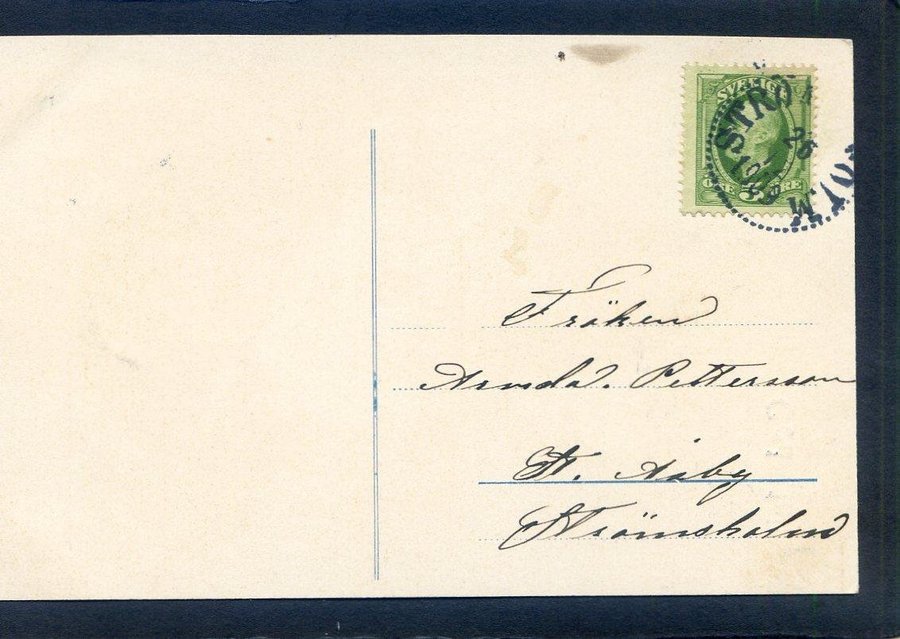 SVERIGE
5
ÖRE ÖRE
STRÖ
26
Fröken
Arvida. Pettersson
St. Åsby
Strömsholm